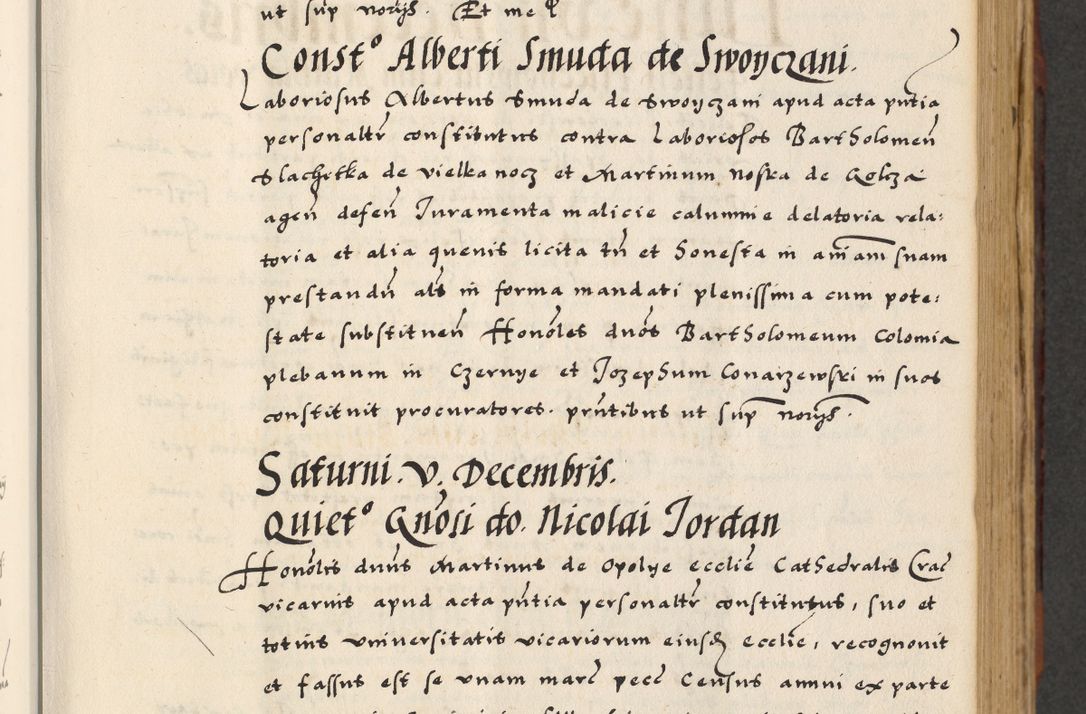 ut sup norijs. Et me
Constᵒ Alberti Smuda de Swoyczani.
Laboriosus Albertus Smuda de Swoyczani apud acta pntia
personaltr constitutus contra Laboriosos Bartholomeu
Slachetka de vielkanocz et Martinum noska de Golcza
agen defen Juramenta malicie calumnie delatoria rela:
toria et alia quevis licita tn et honesta in aniam suam
prestandu als in forma mandati plenissima cum pote:
state substituen Honoles duos Bartholomeum Colomia
plebanum in Czernye et Jozephum Conarzewski in suos
constituit procuratores. pntibus ut sup norijs.
Saturni. V. Decembris.
Quietᵒ Gnosi do. Nicolai Jordan
Honolis duus Martinus de Opolye ecclie Cathedralis Crac
vicarius apud acta pntia personaltr constitutus, suo et
totius universitatis vicariorum eiusd ecclie, recognovit
et fassus est se unam marc pecc Census annui ex parte